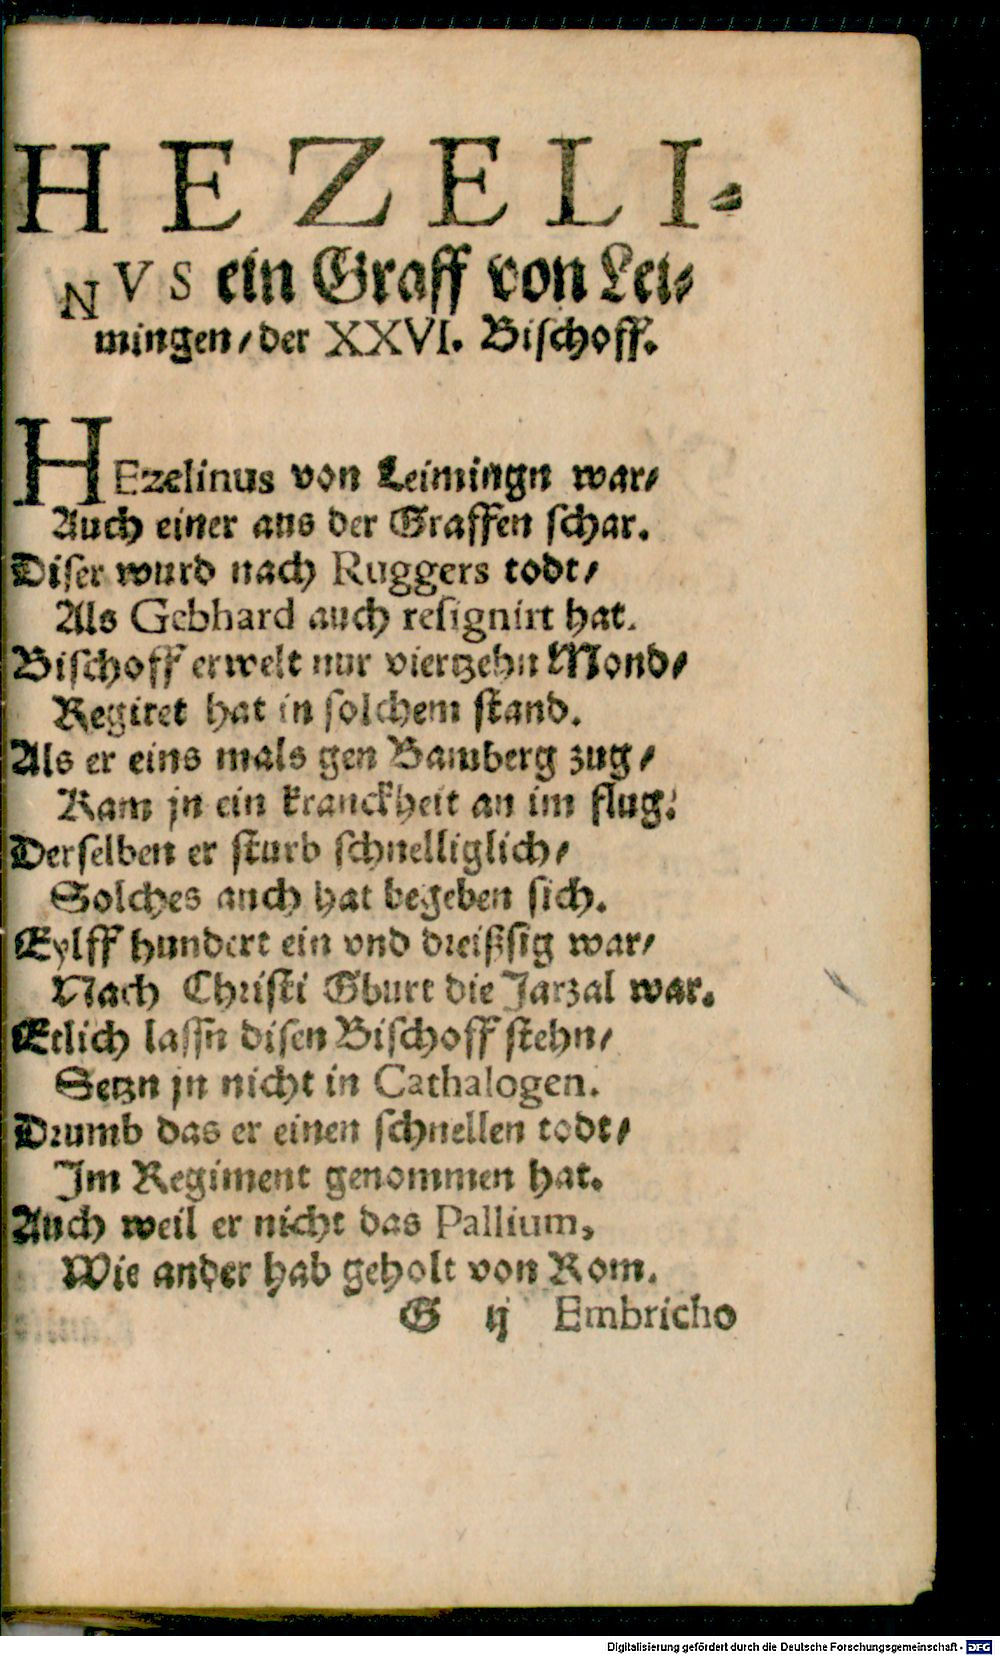 HEZELI-
NVS ein Graff von Lei-
mingen / der XXVI. Bischoff.
HEzelinus von Leimingn war /
Auch einer aus der Graffen schar.
Diser wurd nach Ruggers todt /
Als Gebhard auch resignirt hat.
Bischoff erwelt nur viertzehn Mond /
Regiret hat in solchem stand.
Als er eins mals gen Bamberg zug /
Kam jn ein kranckheit an im flug.
Derselben er sturb schnelliglich /
Solches auch hat begeben sich.
Eylff hundert ein vnd dreißsig war /
Nach Christi Gburt die Jarzal war.
Etlich lassn disen Bischoff stehn /
Setzn jn nicht in Cathalogen.
Drumb das er einen schnellen todt /
Im Regiment genommen hat.
Auch weil er nicht das Pallium,
Wie ander hab geholt von Rom.
G ij Embricho
Digitalisierung gefördert durch die Deutsche Forschungsgemeinschaft - DFG